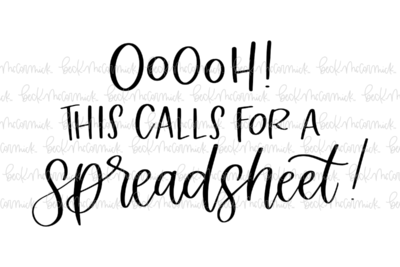 OoOoH!
THIS CALLS FOR A
spreadsheet!